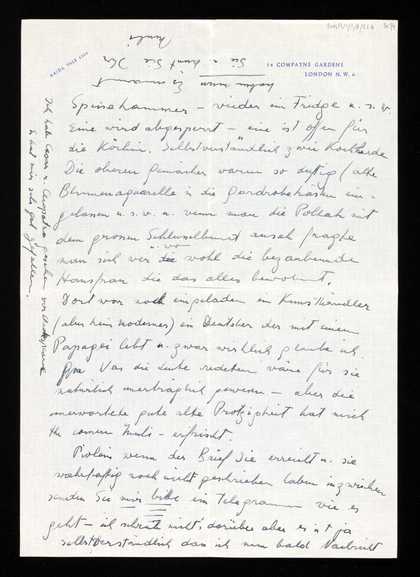 MAIDA VALE 6309
14 COMPAYNE GARDENS
LONDON N.W. 6
Speisekammer – wieder ein Fridge u.s.w.
Eine wird abgesperrt – eine ist offen für
die Köchin. Selbstverständlich zwei
Die oberen Gemächer waren so duftig (alte
Blumenaquarelle in die Garderobekasten ein-
gelassen u.s.w. u. wenn man die Pollak mit
dem grossen Schlüsselbund ansah fragte
man sich wer die wohl die bezaubernde
Hausfrau die das alles bewohnt.
Dort war noch eingeladen ein Kunsthändler
(aber kein moderner) ein Deutscher der mit einem
Papagei lebt u. zwar wirklich glaube ich.
Was die Leute redeten wäre für sie
natürlich unerträglich gewesen – aber die
unerwartete gute alte Protzigkeit hat mich
erfrischt.
wenn der Brief Sie erreicht u. sie
wahrhaftig noch nicht geschrieben haben inzwischen
senden Sie mir bitte ein Telegramm wie es
geht – ich nicht darüber aber es ist ja
selbstverständlich dass ich nun bald Nachricht
haben muss
Sie u. Ihr
Ich habe Cesar u. Cleopatra gesehen
u. hat mir sehr gut gefallen.